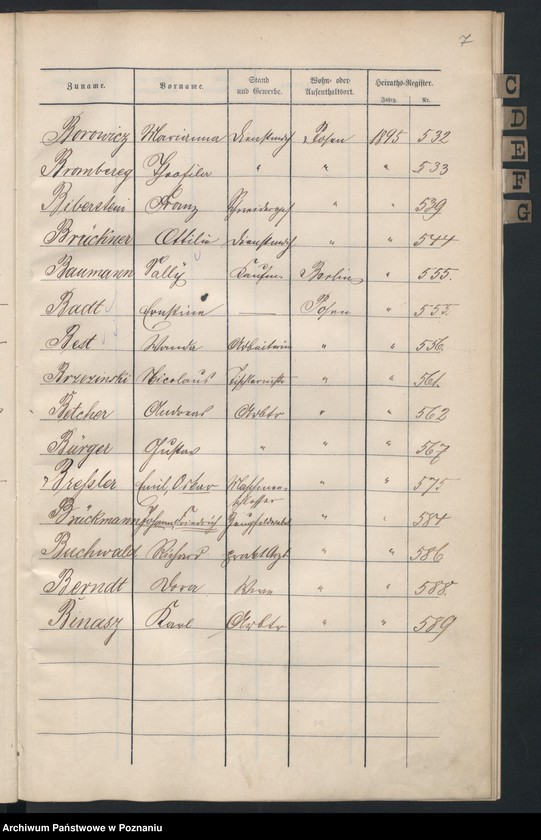 7
Zuname. Vorname. Stand und Gewerbe. Wohn- oder Aufenthaltsort. Heiraths-Register.
Jahrg. Nr.
Borowicz Marianna Dienstmdch Posen 1895 532
Brombereg Teofila " " " 533
Biberstein Franz Schneidergeh " " 539
Brückner Ottilie Dienstmdch " " 544
Baumann Sally Kaufm. Berlin " 555.
Badt Ernstine — Posen " 555.
Best Wanda Arbeiterin " " 556.
Brzezinski Nicolaus Tischlermstr " " 561.
Betcher Andreas Arbtr " " 562
Bürger Gustav " " " 567
Bressler Emil, Oskar Maschinenschlosser " " 575
Brückmann Johann Friedrich " " 584
Buchwald Richard prakt Arzt " " 586
Berndt Dora " " 588.
Binasz Karl Arbtr " " 589
C
D
E
F
G
Archiwum Państwowe w Poznaniu